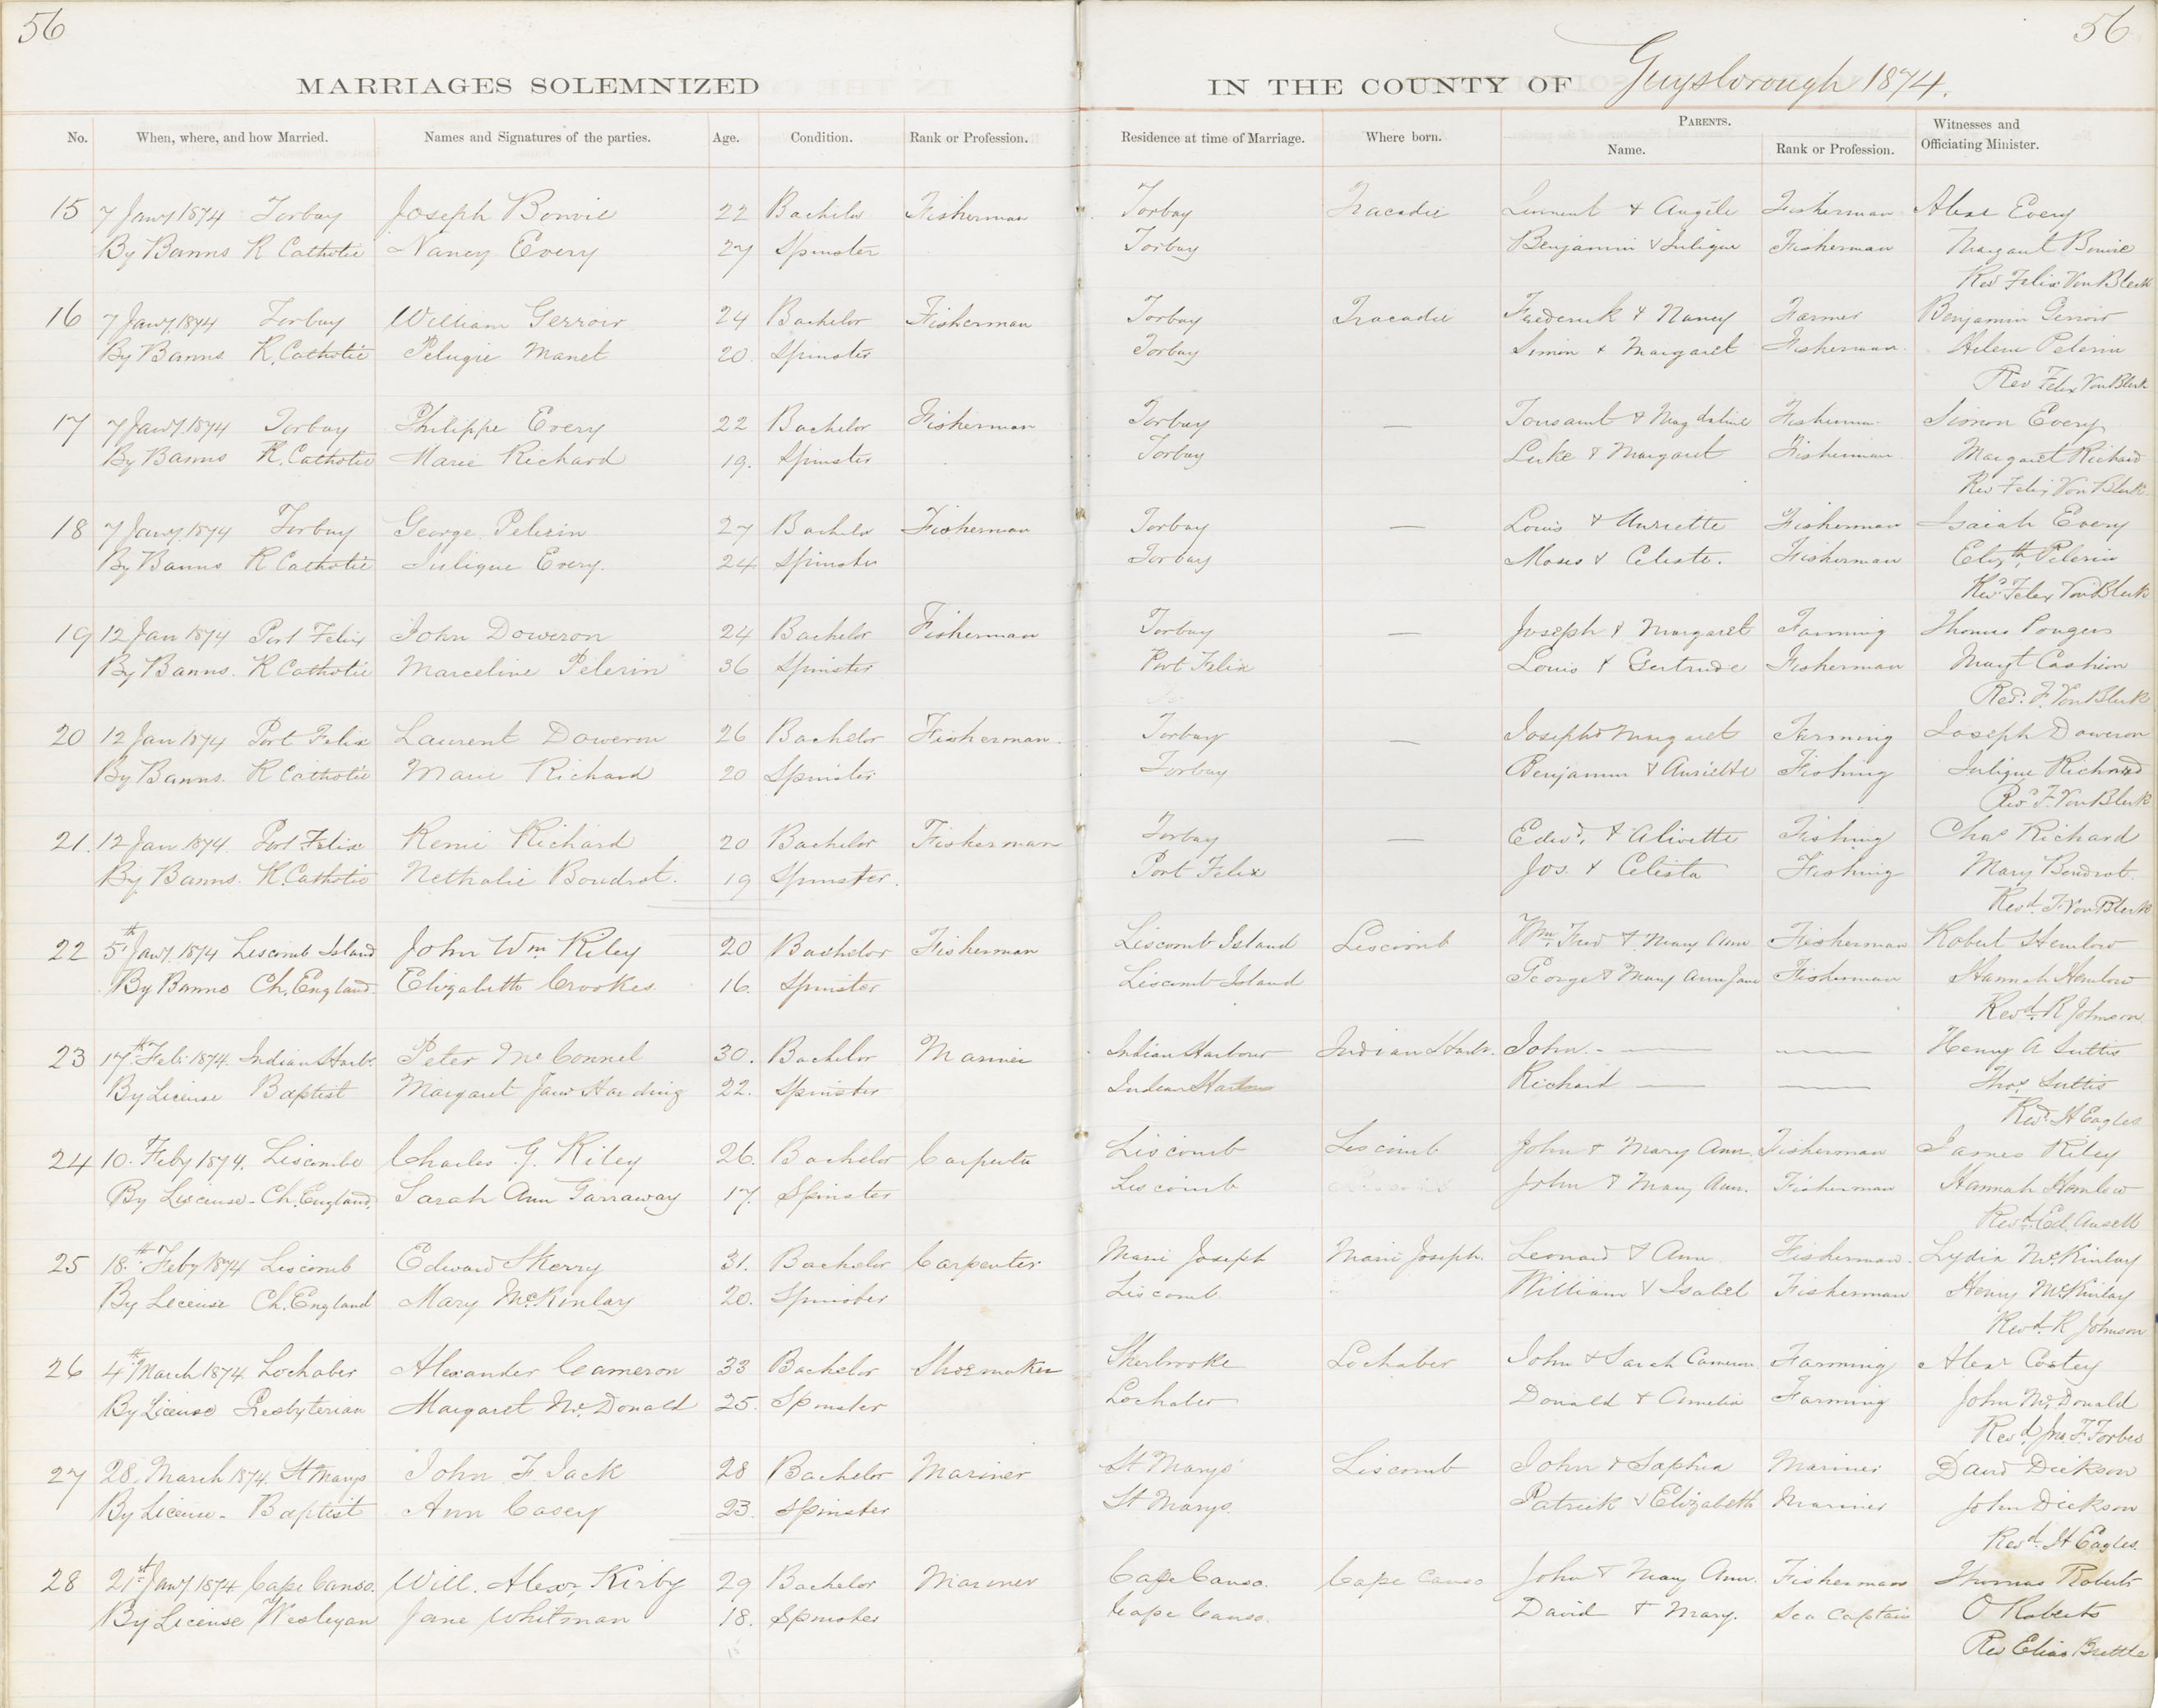 56
56
MARRIAGES SOLEMNIZED
IN THE COUNTY OF Guysborough 1874.
No. When, where, and how Married. Names and Signatures of the parties. Age. Condition. Rank or Profession. Residence at time of Marriage. Where born. PARENTS. Name. Rank or Profession. Witnesses and Officiating Minister.
15 7 Jany 1874 Torbay Joseph Bonvie 22 Bachelor Fisherman Torbay Tracadie & Angéle Fisherman Every
By Banns R Catholic Nancy Every 27 Spinster Torbay Benjamin & Juligue Fisherman Margaret Bonvie
Rev Felix Von Blerk
16 7 Jany. 1874 Torbay William Gerroir 24 Bachelor Fisherman Torbay Tracadie Frederick & Nancy Farmer Benjamin Gerroir
By Banns R. Catholic Pelugie Manet 20. Spinster Torbay Simon & Margaret Fisherman. Helene Pelerin
Rev Felix Von Blerk
17 7 Jany. 1874 Torbay Philippe Every 22 Bachelor Fisherman Torbay — Tousaint & Magdaline Fisherman Simon Every
By Banns R. Catholic Marie Richard 19. Spinster Torbay Luke & Margaret Fisherman Margaret Richard
Rev Felix Von Blerk
18 7 Jany. 1874 Torbay George Pelerin 27 Bachelor Fisherman Torbay — Louis & Auriette Fisherman Isaiah Every
By Banns R Catholic Juligue Every. 24 Spinster Torbay Moses & Celeste. Fisherman Elizth. Pelerin
Revd Felix Von Blerk
19 12 Jan 1874 Port Felix John Doweron 24 Bachelor Fisherman Torbay — Joseph & Margaret Farming Thomas
By Banns. R Catholic Marceline Pelerin 36 Spinster Port Felix Louis & Gertrude Fisherman Margt Cashion
Revd. F. Von Blerk
20 12 Jan 1874 Port Felix Laurent Doweron 26 Bachelor Fisherman. Torbay — Joseph & Margaret Farming Joseph Doweron
By Banns. R Catholic Marie Richard 20 Spinster Torbay Benjamin & Auriette Fishing Juligue Richard
Revd F. Von Blerk
21. 12 Jan 1874. Port Felix Remie Richard 20 Bachelor Fisherman Torbay — Edwd. & Alivette Fishing Chas Richard
By Banns. R. Catholic Nethalie Boudrot. 19 Spinster. Port Felix Jos. & Celesta Fishing Mary Boudrot.
Revd. F. Von Blerk
22 5th Jany. 1874 Liscomb Island John Wm. Riley 20 Bachelor Fisherman Liscomb Island Liscomb Wm. Fred & Mary Ann Fisherman Robert Hemlow
By Banns Ch. England. Elizabeth Crookes 16. Spinster Liscomb Island George & Mary Ann Jane Fisherman Hannah Hemlow
Revd. R Johnson.
23 17th. Feb. 1874. Indian Harbr. Peter McConnel 30. Bachelor Mariner Indian Harbour Indian Harbr. John. - — — Henry A Suttis
By License Baptist Margaret Jane Harding 22. Spinster Indian Harbour Richard — — Thos Suttis
Revd. H Eagles
24 10. Feby 1874. Liscombe Charles G. Riley 26. Bachelor Carpenter Liscomb Liscomb John & Mary Ann. Fisherman James Riley
By Liscense - Ch. England. Sarah Ann Garraway 17. Spinster Liscomb John & Mary Ann. Fisherman Hannah Hemlow
Revd. Ed. Ansell
25 18th. Feby 1874 Liscomb Edward Skerry 31. Bachelor Carpenter Marie Joseph Marie Joseph. Leonard & Ann Fisherman. Lydia McKinlay
By Lecense Ch. England Mary McKinlay 20. Spinster Liscomb William & Isabel Fisherman Henry McKinlay
Revd. R Johnson
26 4th March 1874 Lochaber Alexander Cameron 33 Bachelor Shoemaker Sherbrooke Lochaber John & Sarah Cameron. Farming Alexr
By License Presbyterian Margaret McDonald 25. Spinster Lochaber Donald & Amelia Farming John McDonald
Revd. Jno. F. Forbes
27 28. March 1874. St Marys John F. Jack 28 Bachelor Mariner St Marys Liscomb John & Sophia Mariner David Dickson
By License - Baptist Ann Casey 23. Spinster St Marys. Patrick & Elizabeth Mariner John Dickson
Revd. H Eagles.
28 21st Jany 1874 Cape Canso. Will. Alexr Kirby 29 Bachelor Mariner Cape Canso. Cape Canso John & Mary Ann. Fisherman Thomas Roberts
By License Wesleyan Jane Whitman 18. Spinster Cape Canso. David & Mary. Sea Captain O Roberts
Rev Elias Brettle